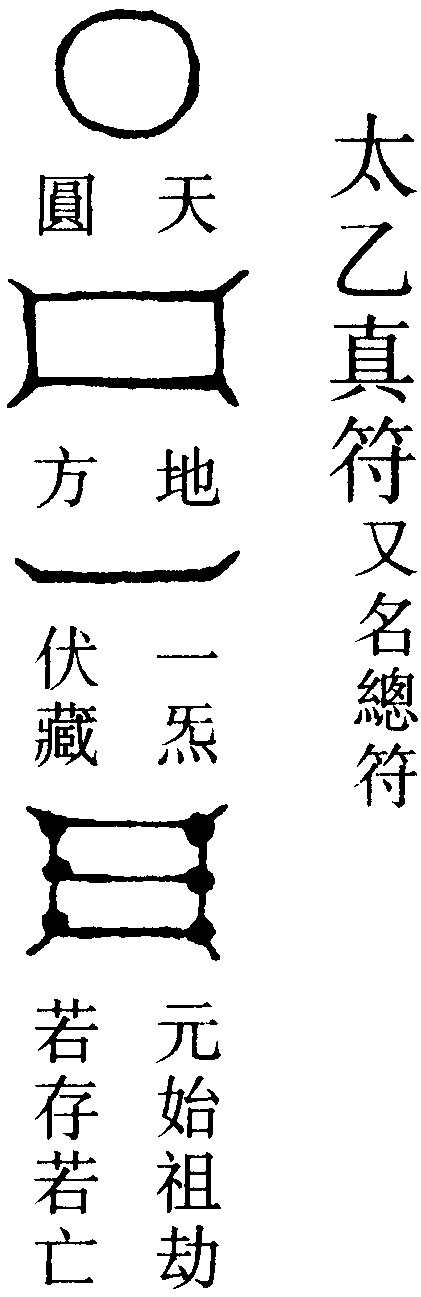 太乙真符又名總符
天圓
地方
一炁伏藏
元始祖劫
若存若亡